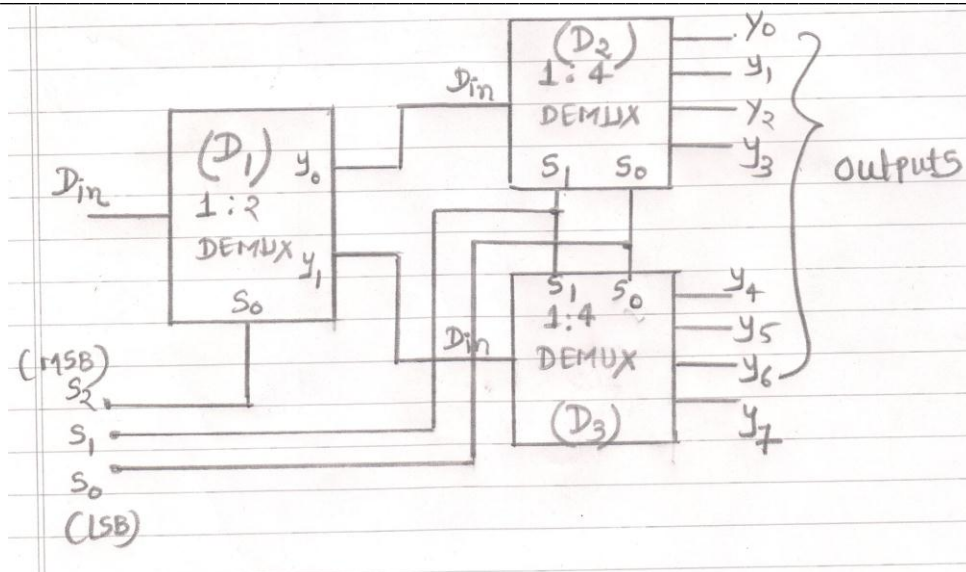 Din
(D1)
1:2
DEMUX
y0
y1
S0
(MSB)
S2
S1
S0
(LSB)
Din
(D2)
1:4
DEMUX
S1 S0
Y0
y1
Y2
y3
outputs
Din
S1 S0
1:4
DEMUX
(D3)
y4
y5
y6
y7